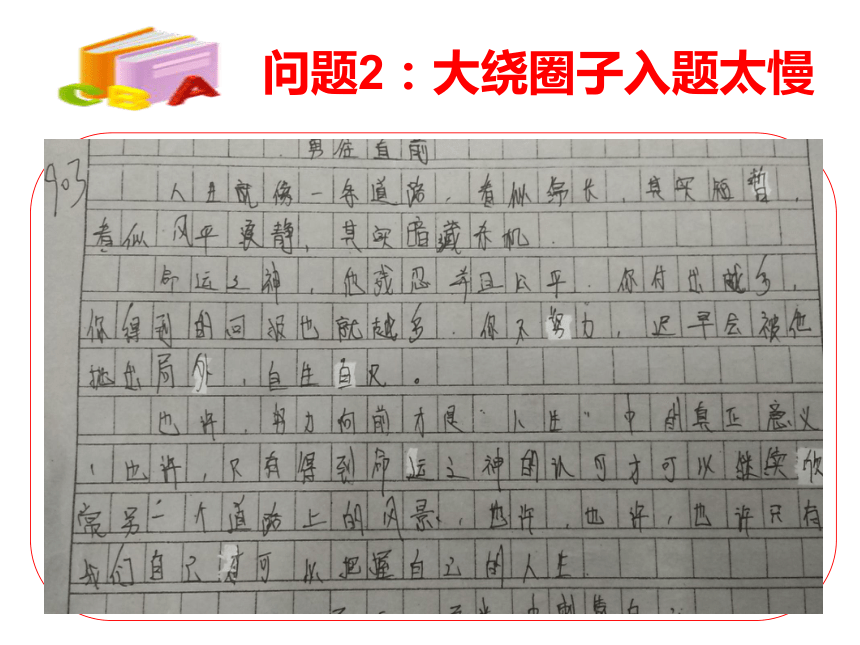 问题2：大绕圈子入题太慢
CBA
903
勇往直前
人生就像一条道路，看似绵长，其实短暂，
看似风平浪静，其实暗藏杀机.
命运之神，他残忍并且公平.你付出越多，
你得到的回报也就越多.你不努力，迟早会被他
抛出局外，自生自灭。
也许，努力向前才是“人生”中的真正意义
，也许，只有得到命运之神的认可才可以继续欣
赏另一个道路上的风景，也许，也许，也许只有
我们自己才可以把握自己的人生.